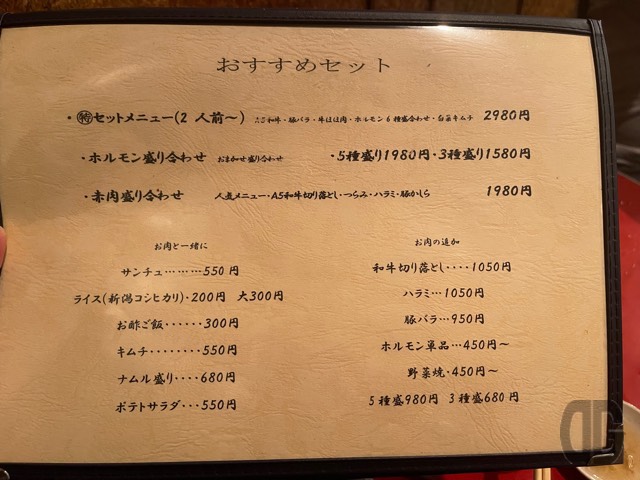 おすすめセット
・㊕セットメニュー(2人前〜) A5和牛・豚バラ・牛ほほ肉・ホルモン6種盛合わせ・白菜キムチ 2980円
・ホルモン盛り合わせ おまかせ盛り合わせ ・5種盛り1980円・3種盛り1580円
・赤肉盛り合わせ 人気メニュー・A5和牛切り落とし・つらみ・ハラミ・豚かしら 1980円
お肉と一緒に
サンチュ………550円
ライス(新潟コシヒカリ)・200円 大300円
お酢ご飯・・・・・・300円
キムチ・・・・・・・・550円
ナムル盛り・・・・680円
ポテトサラダ・・・550円
お肉の追加
和牛切り落とし・・・・1050円
ハラミ…1050円
豚バラ…950円
ホルモン単品…450円〜
野菜焼・450円〜
5種盛980円 3種盛680円